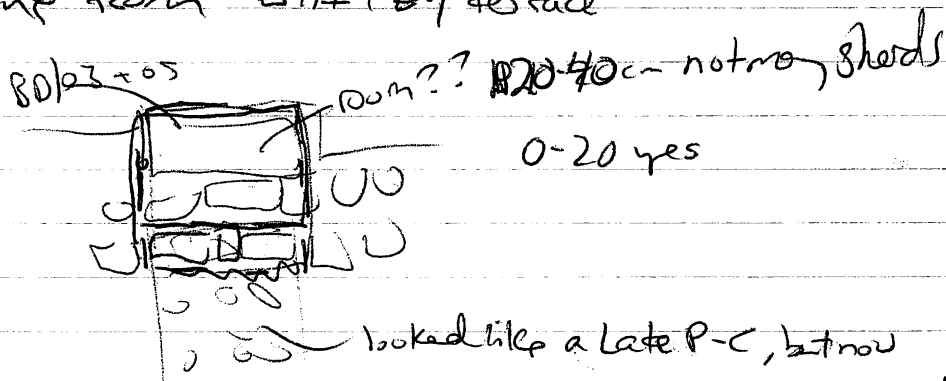 terrace
BD/03 + 05
room?? 20-40cm - not many sherds
0-20 yes
looked like a Late P-C, but now